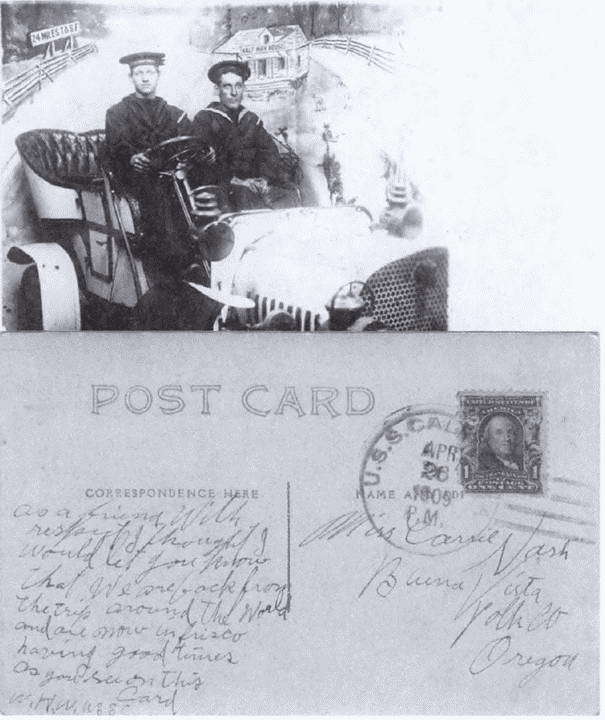 24 MILES TO S.F.
HALF WAY HOUSE
POST CARD
U.S.S. CAL
APR
26
1909
P.M.
AMERICA
1
CORRESPONDENCE HERE
NAME AND
as a friend With
respect I thought I
Would let you know
that We are back from
the trip around the World
and are now in frisco
having good times
as you see on this
Card
Miss Carrie Nash
Buena Vista
Polk Co
Oregon